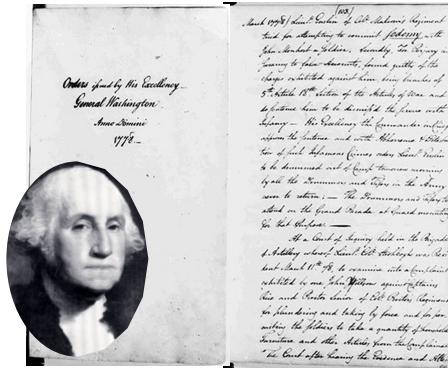 Orders issued by His Excellency
General Washington
Anno Domini
1778.
(103)
March 1778/ Lieut. Enslin of Colo. Malcom's Regiment
tried for attempting to commit sodomy, with
John Monhort a Soldier, Secondly, For Perjury in
swearing to false Accounts, found guilty of the
charges exhibited against him, being breaches of
5th. Article 18th. Section of the Articles of War and
do sentence him to be dismiss'd the service with
Infamy — His Excellency the Commander in Chief
approves the sentence and with Abhorrence & Detesta
tion of such Infamous Crimes orders Lieut. Enslin
to be drummed out of Camp tomorrow morning
by all the Drummers and Fifers in the Army
never to return; — The Drummers and Fifers to
attend on the Grand Parade at Guard mounting
for that Purpose —
At a Court of Inquiry held in the Brigade
of Artillery whereof Lieut. Colo. Strobogh was Presi
dent March 11th. 78, to examine into a Complaint
exhibited by one John Willson against Captains
Rice and Proctor Junior of Colo. Proctors Regiment
for plundering and taking by force and for per
mitting the soldiers to take a quantity of household
Furniture and other Articles from the Complainant
The Court after hearing the Evidence and